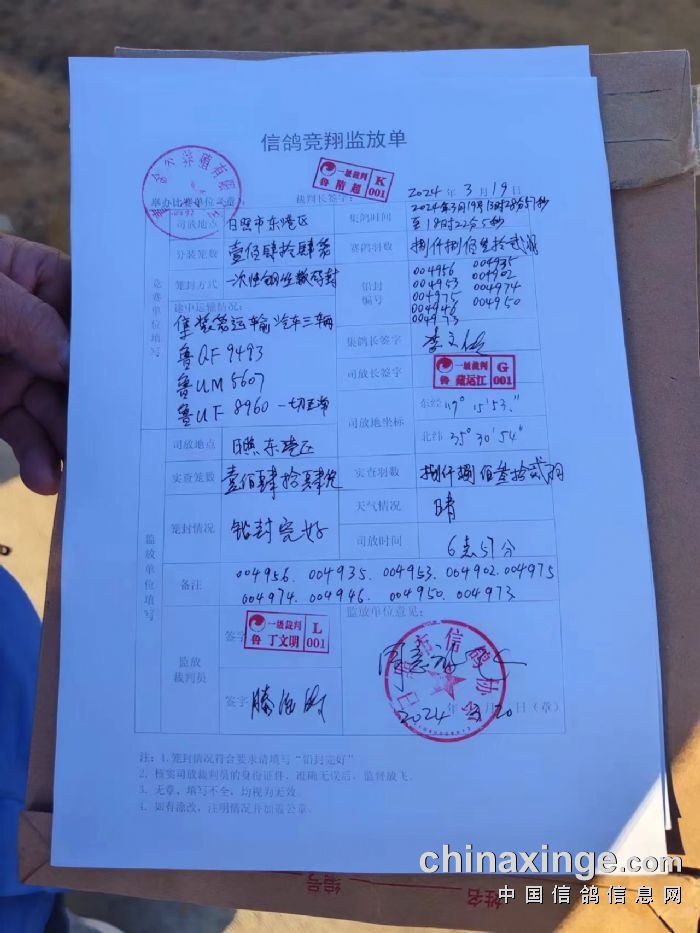 信鸽竞翔监放单
2024 年 3 月 19 日
举办比赛单位（章）： 裁判长签字：
一级裁判 K
鲁 隋超 001
司放地点 日照市东港区 集鸽时间 2024年3月19号13时28分51秒
至18时22分5秒
分装笼数 壹佰肆拾肆笼 赛鸽羽数 捌仟捌佰叁拾贰羽
笼封方式 一次性钢丝数码封 铅封编号 004956 004935
004953 004902
004975 004974
004946 004950
004973
竞赛单位填写
途中运输情况：
集装笼运输 汽车三辆
鲁QF 9493
鲁UM 5607
鲁UF 8960 一切正常
集鸽长签字 李文
司放长签字
一级裁判 G
鲁 臧运江 001
司放地坐标 东经 119° 15′53.″
北纬 35° 30′54″
监放单位填写
司放地点 日照东港区
实查笼数 壹佰肆拾肆笼 实查羽数 捌仟捌佰叁拾贰羽
笼封情况 铅封完好 天气情况 晴
司放时间 6点57分
备注 004956. 004935. 004953. 004902. 004975
004974. 004946. 004950. 004973
监放裁判员 签字 监放单位意见：
一级裁判 L
鲁 丁文明 001
签字 同意
市信鸽协会
2024 年 3 月 20 日（章）
注：1. 笼封情况符合要求请填写“铅封完好”
2. 核实司放裁判员的身份证件，准确无误后，监督放飞。
3. 无章，填写不全，均视为无效。
4. 如有涂改，注明情况并加盖公章。
编号
姓名
chinaxinge.com
中国信鸽信息网